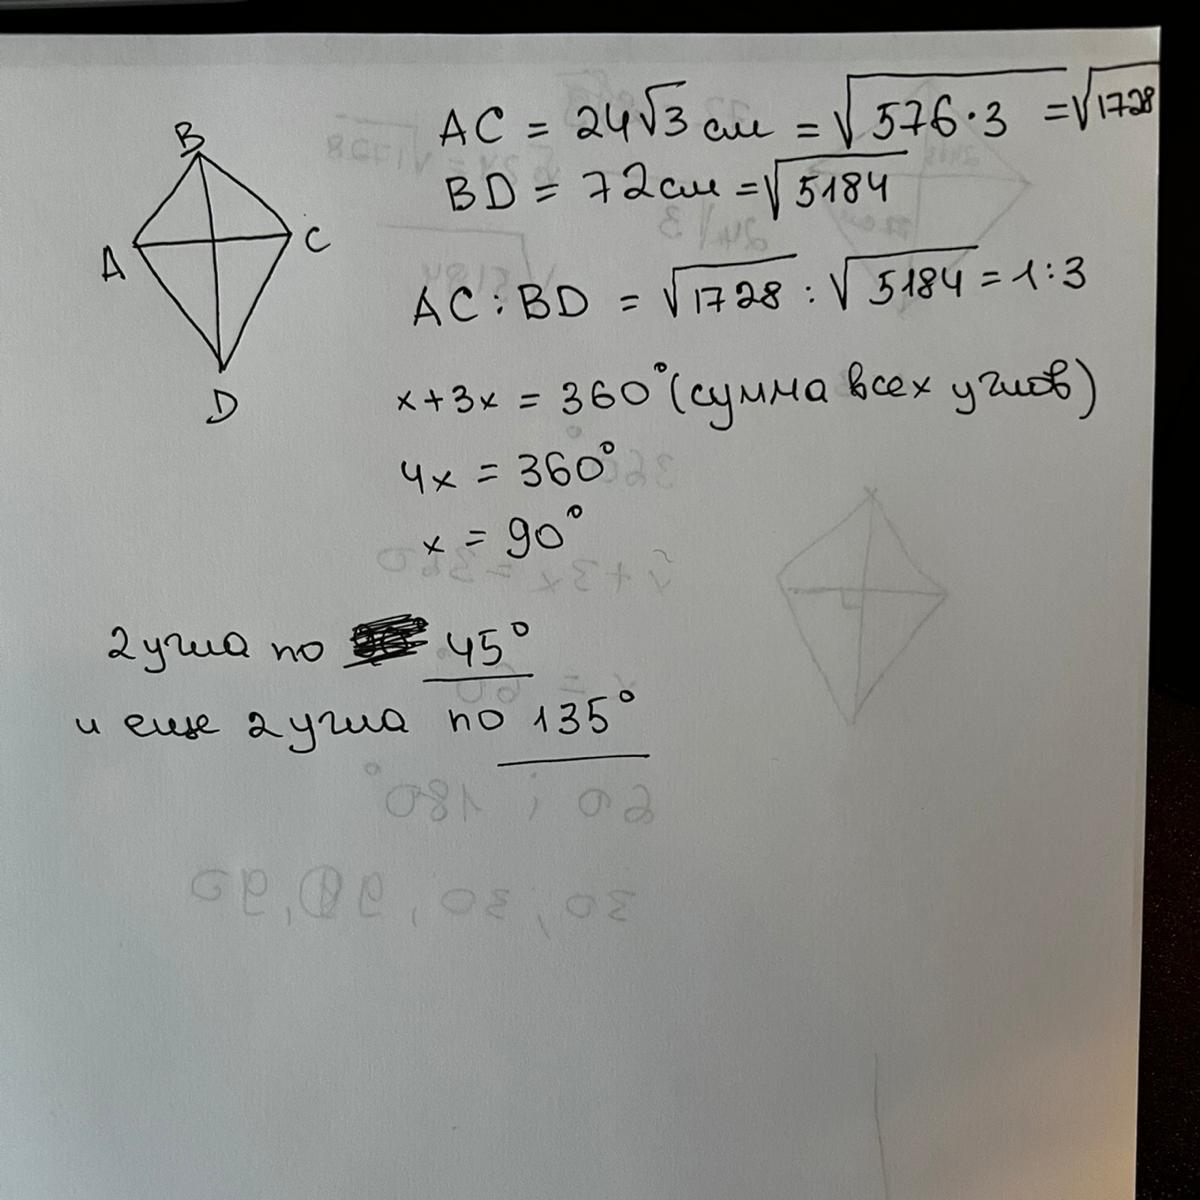 B
A
C
D
AC = 24√3 см = √576·3 = √1728
BD = 72см = √5184
AC : BD = √1728 : √5184 = 1:3
x+3x = 360° (сумма всех углов)
4x = 360°
x = 90°
2 угла по 45°
и еще 2 угла по 135°